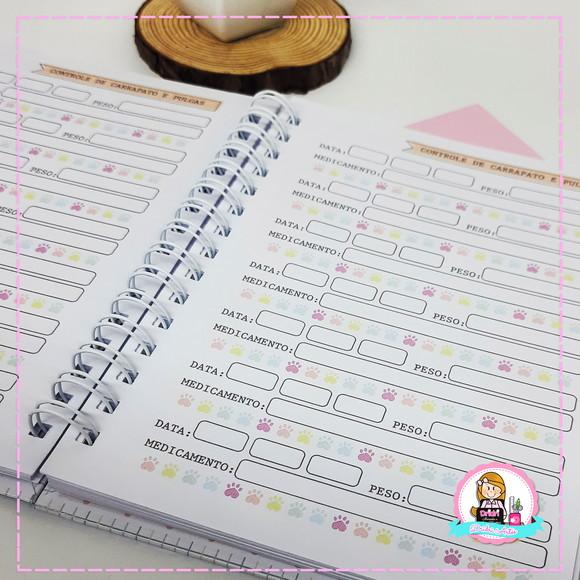 CONTROLE DE CARRAPATO E PULGAS
PESO:
PESO:
PESO:
PESO:
CONTROLE DE CARRAPATO E PUL
DATA: PESO:
MEDICAMENTO:
DATA: PESO:
MEDICAMENTO:
DATA: PESO:
MEDICAMENTO:
DATA: PESO:
MEDICAMENTO:
DATA: PESO:
MEDICAMENTO:
DATA: PESO:
MEDICAMENTO:
DATA: PESO:
MEDICAMENTO: